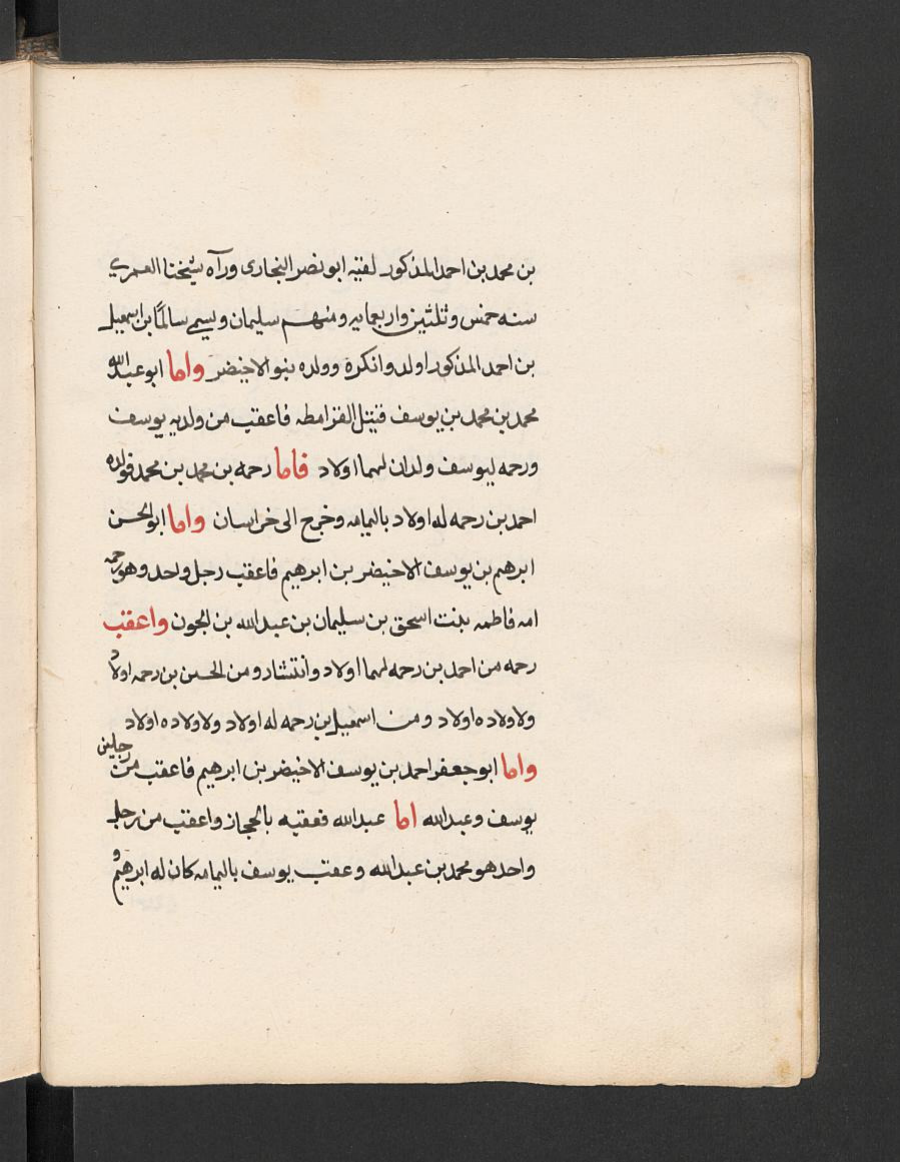 بن محمد بن احمد المذكور لقيه ابو نصر البخارى ورآه شيخنا العمري
سنه خمس وثلثين واربعمايه ومنهم سليمان ويسمى سالمًا بن اسمعيل
بن احمد المذكور اولد وانكرة وولده بنو الاخيضر واما ابو عبدالله
محمد بن محمد بن يوسف قتيل القرامطه فاعقب من ولديه يوسف
ورحمه ليوسف ولدان لهما اولاد فاما رحمه بن محمد بن محمد فولده
احمد بن رحمه له اولاد باليمامه وخرج الى خراسان واما ابو الحسن
ابرهم بن يوسف الاخيضر بن ابرهيم فاعقب رجل واحد وهو رحمه
امه فاطمه بنت اسحق بن سليمان بن عبدالله بن الجون واعقب
رحمه من احمد بن رحمه لهما اولاد وانتشار ومن الحسن بن رحمه اولاد
ولاولاده اولاد ومن اسمعيل بن رحمه له اولاد ولاولاده اولاد
واما ابو جعفر احمد بن يوسف الاخيضر بن ابرهيم فاعقب من رجلين
يوسف وعبدالله اما عبدالله فعقبه بالحجاز واعقب من رجل
واحد هو محمد بن عبدالله وعقب يوسف باليمامه كان له ابرهيم و